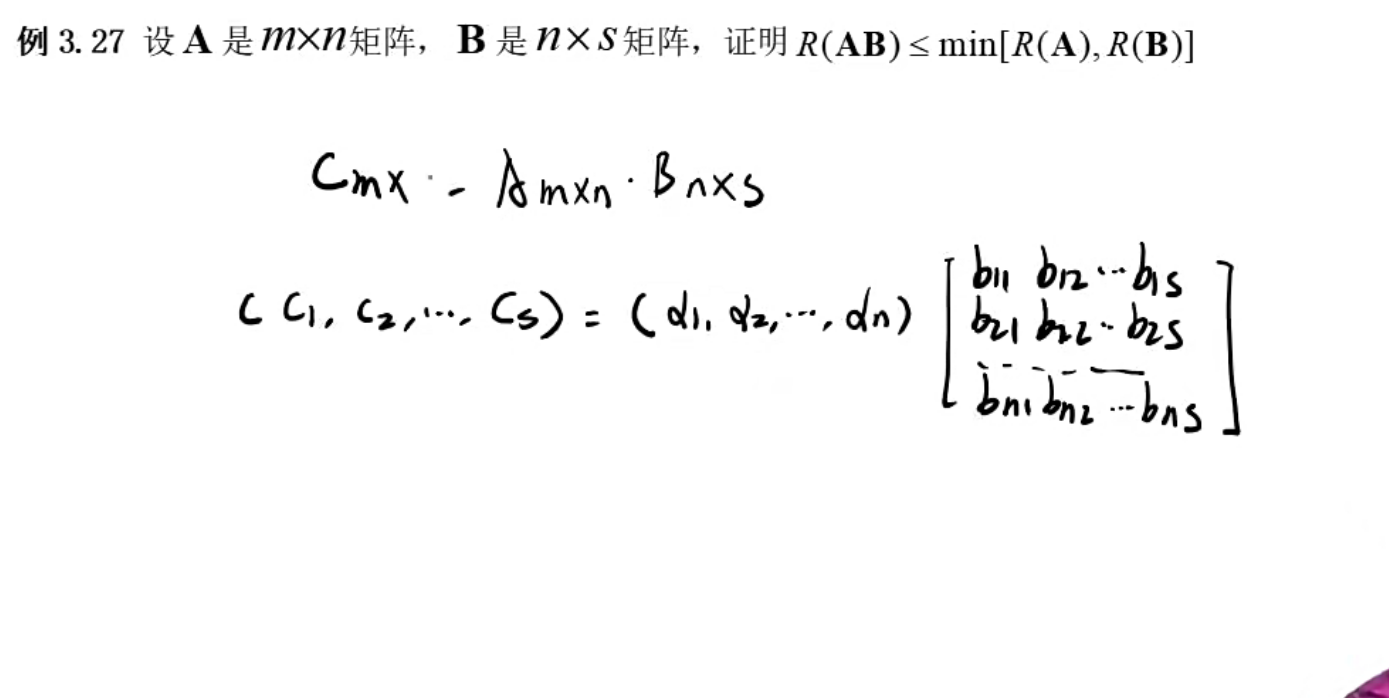 例 3.27 设 A 是 m×n 矩阵， B 是 n×s 矩阵，证明 R(AB) ≤ min[R(A), R(B)]
Cm× - Am×n · Bn×s
(C1, C2, ..., Cs) = (α1, α2, ..., αn) [b11 b12 ... b1s
b21 b22 ... b2s
bn1 bn2 ... bns]